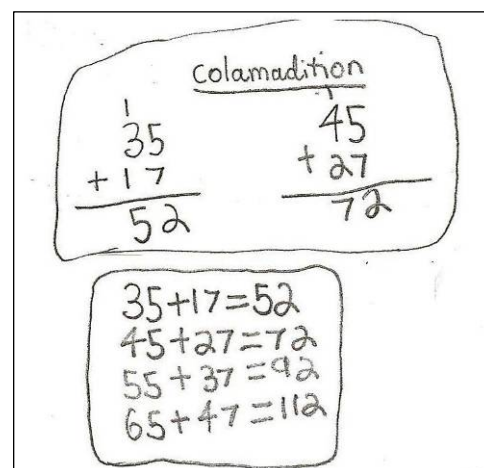 colamadition
1 1
35 45
+17 +27
52 72
35+17=52
45+27=72
55+37=92
65+47=112